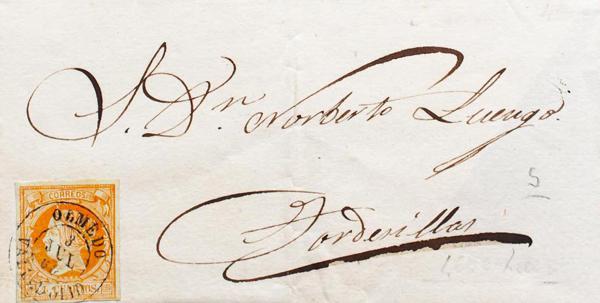 S. Dn Norberto Luengo.
Tordesillas
CORREOS
OLMEDO
VALLADOLID